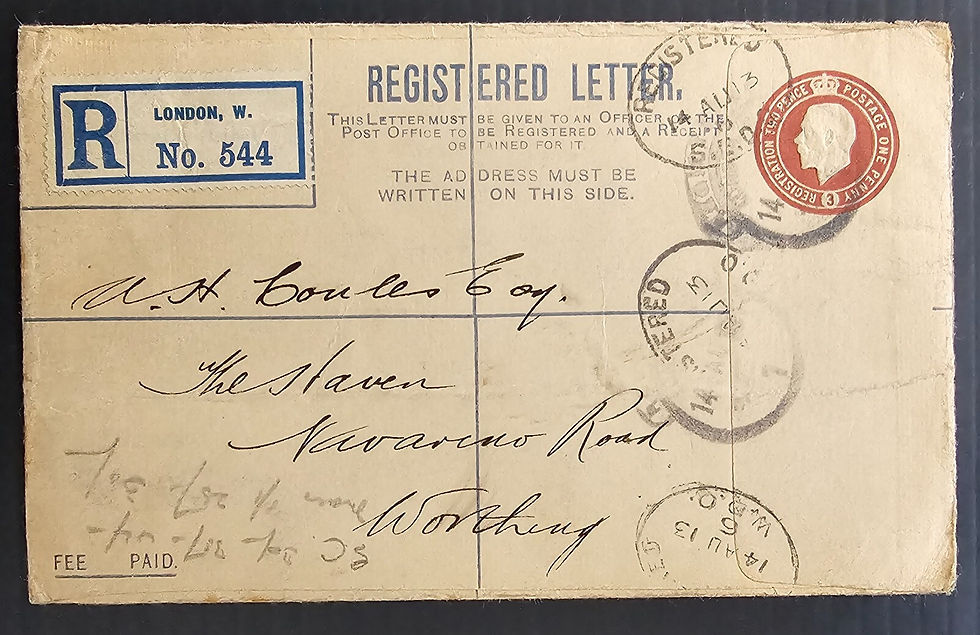 REGISTERED LETTER.
THIS LETTER MUST BE GIVEN TO AN OFFICER OF THE
POST OFFICE TO BE REGISTERED AND A RECEIPT
OBTAINED FOR IT.
THE ADDRESS MUST BE
WRITTEN ON THIS SIDE.
R
LONDON, W.
No. 544
REGISTRATION TWO PENCE POSTAGE ONE PENNY
3
REGISTERED
14 AU 13
The Haven
Navarino Road
Worthing
FEE PAID.
14 AU 13
W.D.O.